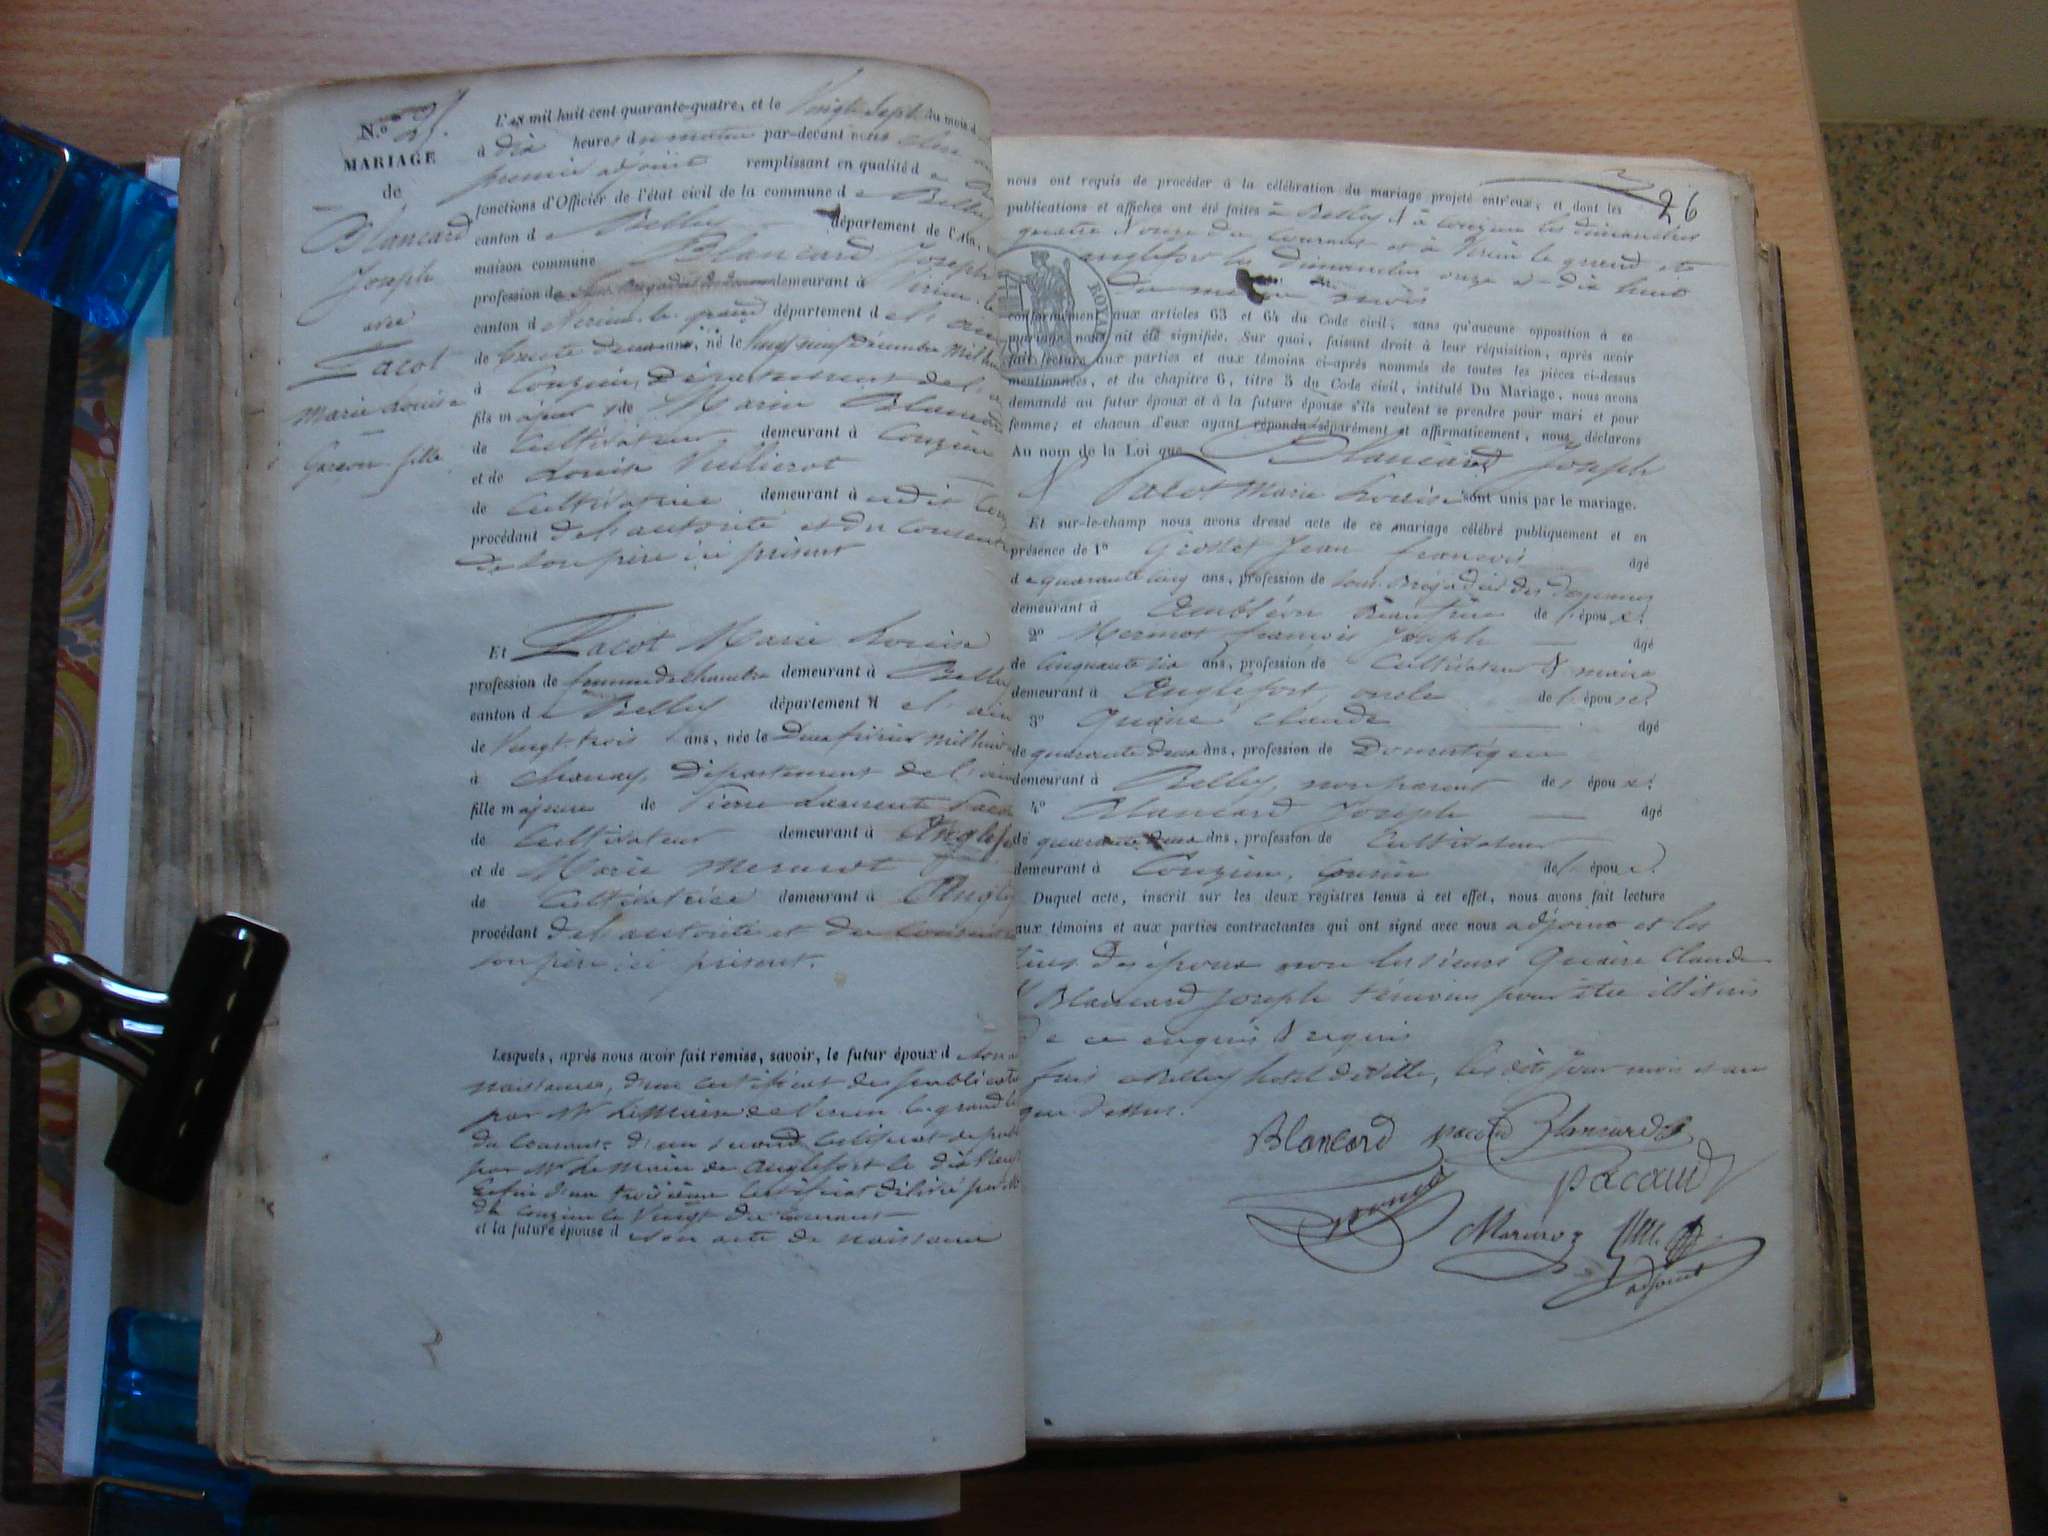 N.º
MARIAGE
de
Blancard
Joseph
avec
Pacot
Marie Louise
Garçon fille
L'an mil huit cent quarante-quatre, et le Vingt Sept du mois d
à dix heures du matin par-devant nous
premier adjoint remplissant en qualité d
fonctions d'Officier de l'état civil de la commune de Belley
canton de Belley département de l'Ain,
maison commune Blancard Joseph
profession de demeurant à Virieu-le
canton de Virieu-le-grand département de l'ain
de trente deux ans, né le neuf Décembre Mil huit
à Couzieu, Département de l'a
fils majeur de Marin Blancard
de Cultivateur demeurant à Couzieu
et de Louise Vullierot
de Cultivatrice demeurant à
procédant de l'autorité et du consent
de son père ici présent
Et Pacot Marie Louise
profession de femme de chambre demeurant à Belley
canton de Belley département de l'ain
de Vingt-trois ans, née le Deux février Mil huit
à Chanay, Département de l'ain
fille majeure de Pierre Laurent Pacot
de Cultivateur demeurant à Anglef
et de Marie Mermot
de Cultivatrice demeurant à Anglef
procédant de l'autorité et du consente
son père ici présent.
Lesquels, après nous avoir fait remise, savoir, le futur époux de son a
naissance, d'un certificat des publicati
par Mr Le Maire de Virieu le grand le
du courant, d'un second certificat de publ
par Mr le maire de Anglefort le dix
Enfin d'un troisième certificat délivré par M
de Couzieu le Vingt du Courant
et la future épouse de son acte de naissance
26
nous ont requis de procéder à la célébration du mariage projeté entr'eux, et dont les
publications et affiches ont été faites à Belley & à Couzieu les dimanches
quatre & onze du Courant et à Virieu le grand et à
anglefort les dimanches onze & dix huit
du même mois
ROYAL
conformément aux articles 63 et 64 du Code civil, sans qu'aucune opposition à ce
mariage nous ait été signifiée. Sur quoi, faisant droit à leur réquisition, après avoir
fait lecture aux parties et aux témoins ci-après nommés de toutes les pièces ci-dessus
mentionnées, et du chapitre 6, titre 5 du Code civil, intitulé Du Mariage, nous avons
demandé au futur époux et à la future épouse s'ils veulent se prendre pour mari et pour
femme; et chacun d'eux ayant répondu séparément et affirmativement, nous déclarons
Au nom de la Loi que Blancard Joseph
& Pacot Marie Louise sont unis par le mariage.
Et sur-le-champ nous avons dressé acte de ce mariage célébré publiquement et en
présence de 1º Grosset Jean françois âgé
de quarante cinq ans, profession de Sous Brigadier des douannes
demeurant à Ambléon Beaufrère de l'époux
2º Mermot françois Joseph âgé
de Cinquante six ans, profession de Cultivateur & maire
demeurant à Anglefort, oncle de l'épouse
3º Quaire Claude âgé
de quarante deux ans, profession de Domestique
demeurant à Belley, non parent des époux
4º Blancard Joseph âgé
de quarante deux ans, profession de Cultivateur
demeurant à Couzieu, Cousin de l'époux
Duquel acte, inscrit sur les deux registres tenus à cet effet, nous avons fait lecture
aux témoins et aux parties contractantes qui ont signé avec nous adjoint et les
pères des époux non les sieurs Quaire Claude
& Blancard Joseph témoins pour être illitérés
de ce enquis & requis
fait à Belley hotel de Ville, les dits jour mois et an
que dessus.
Blancard pacot Blancard
pacaud
adjoint